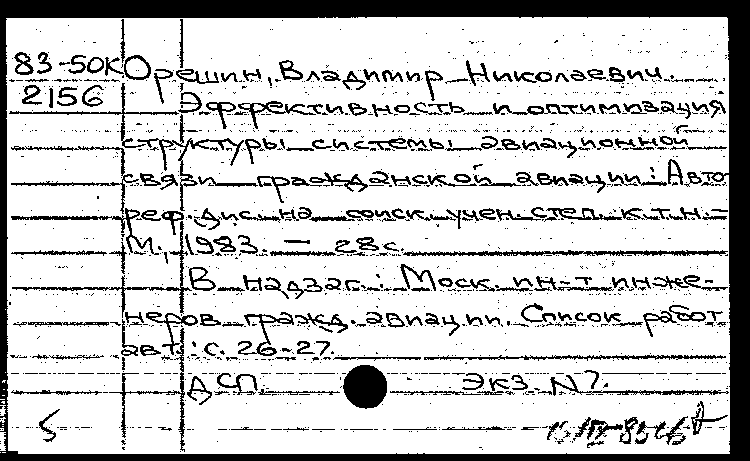 83-50к Орешин, Владимир Николаевич.
2156 Эффективность и оптимизация
структуры системы авиационной
связи гражданской авиации: Авто-
реф. дис. на соиск. учен. степ. к.т.н. –
М., 1983. – 28 с.
В надзаг.: Моск. ин-т инже-
неров гражд. авиации. Список работ
авт.: с. 26-27.
ДСП. Экз. N 7.
5